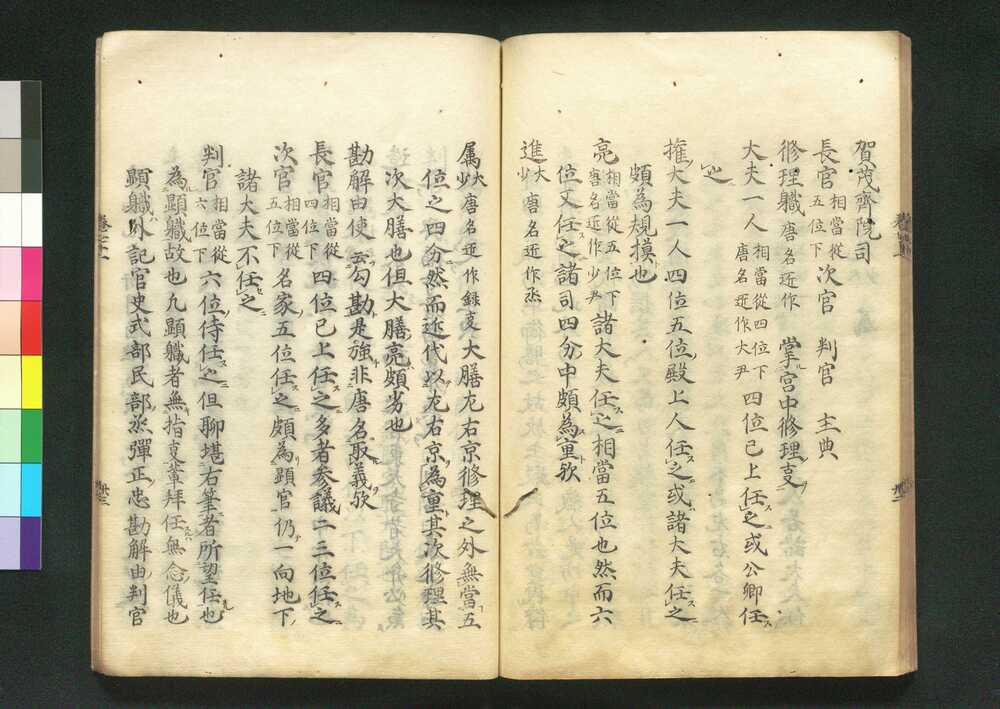 賀茂齊院司
長官相當從五位下次官 判官 主典
修理軄唐名匠作 掌宮中修理㕝
大夫一人相當從四位下唐名匠作大尹四位已上任之或公卿任
之
權大夫一人四位五位殿上人任之或諸大夫任之
頗為規摸也
亮相當從五位下唐名匠作少尹諸大夫任之相當五位也然而六
位又任之諸司四分中頗為重欤
進大少唐名匠作丞
属大少唐名匠作録㕝大膳左右京修理之外無當五
位之四分然而近代以左右京為重其次修理其
次大膳也但大膳亮頗劣也
勘解由使云勾勘是強非唐名取義欤
長官相當從四位下四位已上任之多者参議二三位任之
次官相當從五位下名家五位任之頗為顕官仍一向地下
諸大夫不任之
判官相當從六位下六位侍任之但聊堪右筆者所望任也
為顕軄故也凡顕軄者無指㕝輩拜任無念儀也
顕軄外記官史式部民部丞彈正忠勘解由判官